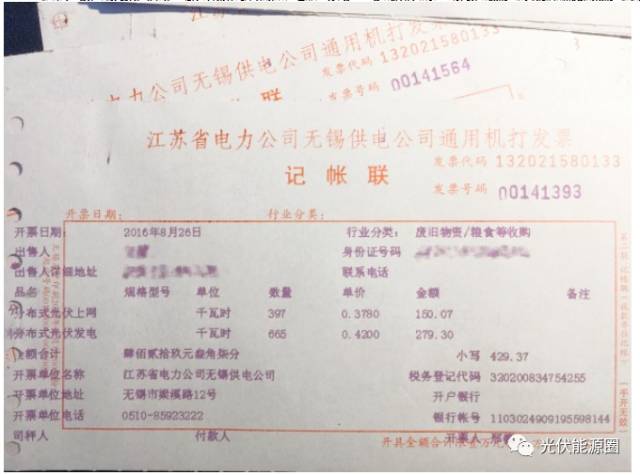 江苏省电力公司无锡供电公司通用机打发票
发票代码 132021580133
发票号码 00141564
江苏省电力公司无锡供电公司通用机打发票
记帐联
发票代码 132021580133
发票号码 00141393
开票日期： 行业分类：
开票日期： 2016年8月26日 行业分类： 废旧物资/粮食等收购
出售人 身份证号码
出售人详细地址 联系电话
品名 规格型号 单位 数量 单价 金额 备注
分布式光伏上网 千瓦时 397 0.3780 150.07
分布式光伏发电 千瓦时 665 0.4200 279.30
金额合计 肆佰贰拾玖元叁角柒分 小写 429.37
开票单位名称 江苏省电力公司无锡供电公司 税务登记代码 320200834754255
开票单位地址 无锡市梁溪路12号 开户银行
开票单位电话 0510-85923222 银行帐号 1103024909195598144
司秤人 付款人 开票人
（手开无效）
光伏能源圈